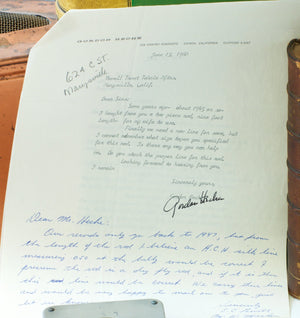 GORDON HECHE
June 13, 1960
624 C ST.
Marysville
Marysville Calif.
Dear Sirs:
Some years ago - about 1945
I bought from you a two piece rod, nine feet
length, for my wife to use.
Finally we need a new line for same, but
I cannot remember what size tapes you specified
for this rod. Is there any way you can help
us. So you check the proper line for this rod.
Looking forward to hearing from you,
I remain
Sincerely yours,
Gordon Heche
Dear Mr. Heche:
Our records only go back to 1947, but from
the length of the rod I believe an H.C.H. silk line
measuring 050 at the belly would be correct. I
presume the rod is a dry fly rod, and if it is then
this line would be correct. We carry these lines
and would be very happy to mail one to you just
let us know.
Sincerely